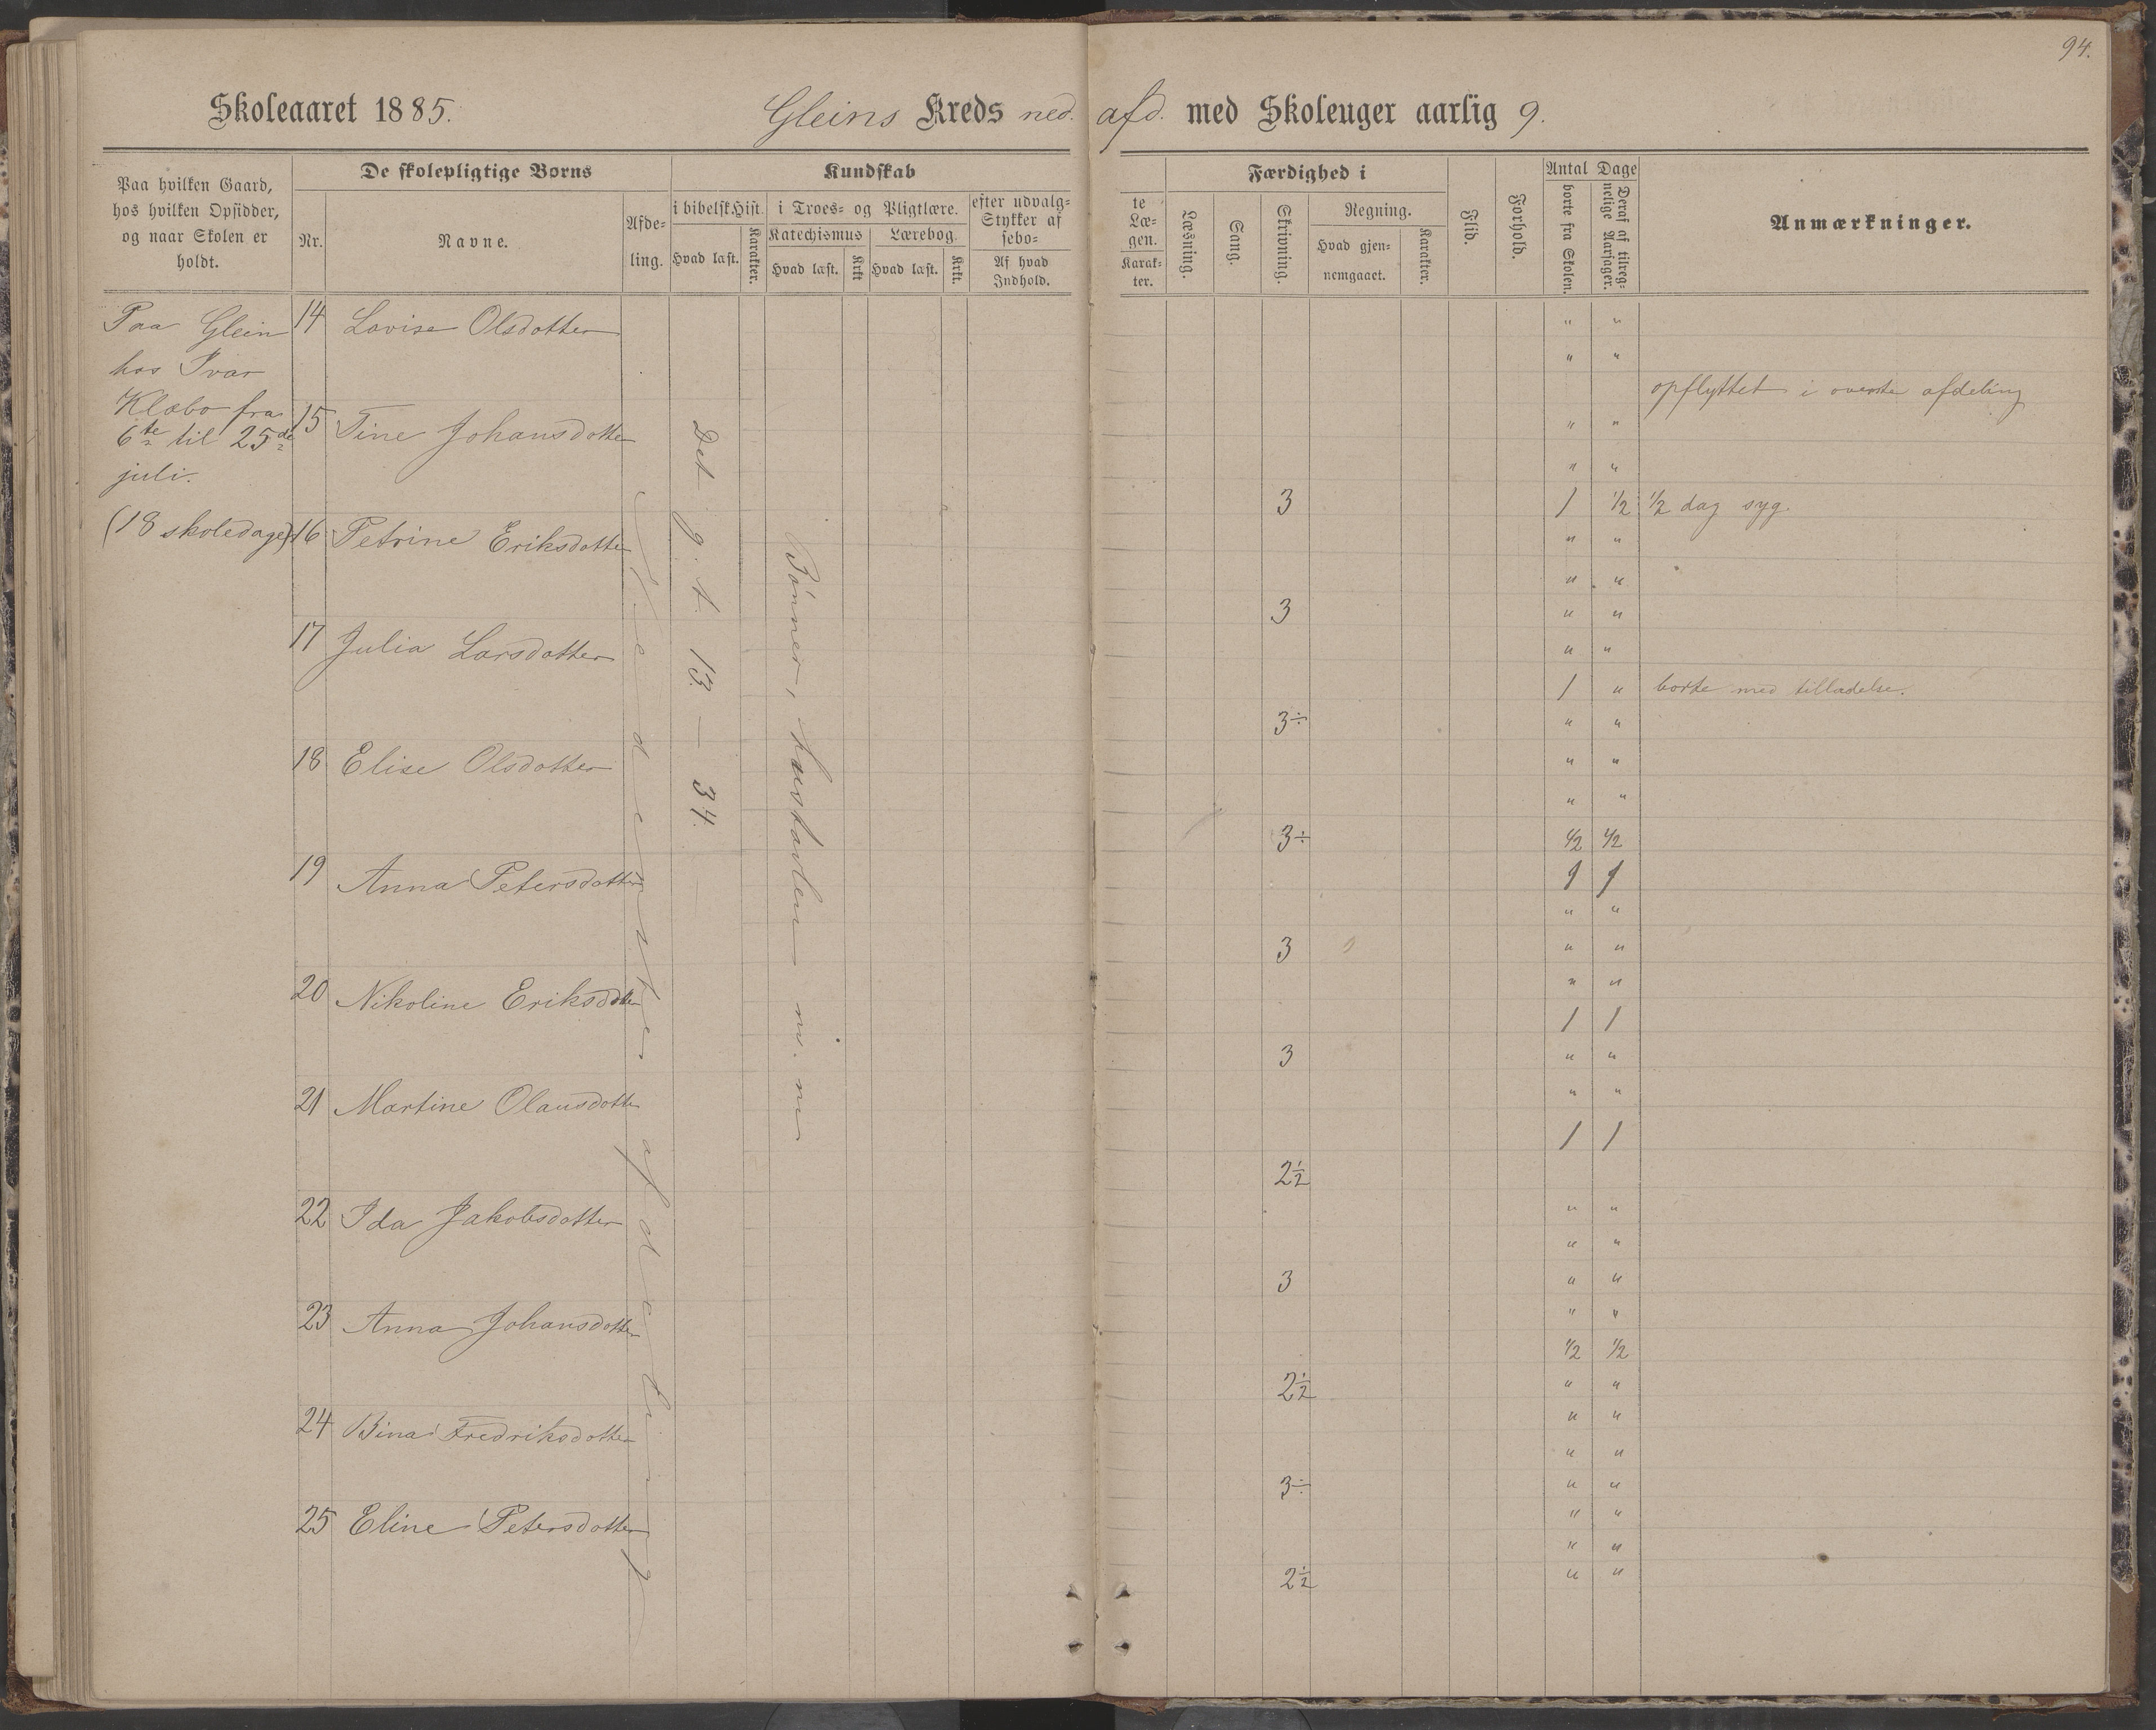 94.
Skoleaaret 1885. Gleins Kreds ned. afd. med Skoleuger aarlig 9.
Paa hvilken Gaard,
hos hvilken Opsidder,
og naar Skolen er
holdt.
De skolepligtige Børns
Nr.
Navne.
Afde-
ling.
Kundskab
i bibelsk Hist.
Hvad læst.
Karakter.
i Troes- og Pligtlære.
Katechismus
Hvad læst.
Krkt
Lærebog.
Hvad læst.
Krkt.
efter udvalg-
Stykker af
sebo-
Af hvad
Indhold.
te
Læ-
gen.
Karak-
ter.
Færdighed i
Læsning.
Sang.
Skrivning.
Regning.
Hvad gjen-
nemgaaet.
Karakter.
Flid.
Forhold.
Antal Dage
borte fra Skolen.
Deraf af tilreg-
nelige Aarsager.
Anmærkninger.
Paa Glein
hos Ivar
Klæbo fra
6te til 25de
juli.
(18 skoledage)
Nederste afdeling
Det g. t. 13. — 34.
Bønner, hustavlen m. m
14 Lovise Olsdotter " "
" "
opflyttet i øverste afdeling
15 Tine Johansdotter " "
" "
3 1 1/2 1/2 dag syg.
16 Petrine Eriksdotter " "
" "
3 " "
17 Julia Larsdotter " "
1 " borte med tilladelse.
3÷ " "
18 Elise Olsdotter " "
" "
3÷ 1/2 1/2
19 Anna Petersdotter 1 1
" "
3 " "
20 Nikoline Eriksdotter " "
1 1
3 " "
21 Martine Olausdotter " "
1 1
2 1/2
22 Ida Jakobsdotter " "
" "
3 " "
23 Anna Johansdotter " "
1/2 1/2
2 1/2 " "
24 Bina Fredriksdotter " "
" "
3÷ " "
25 Eline Petersdotter " "
" "
2 1/2 " "